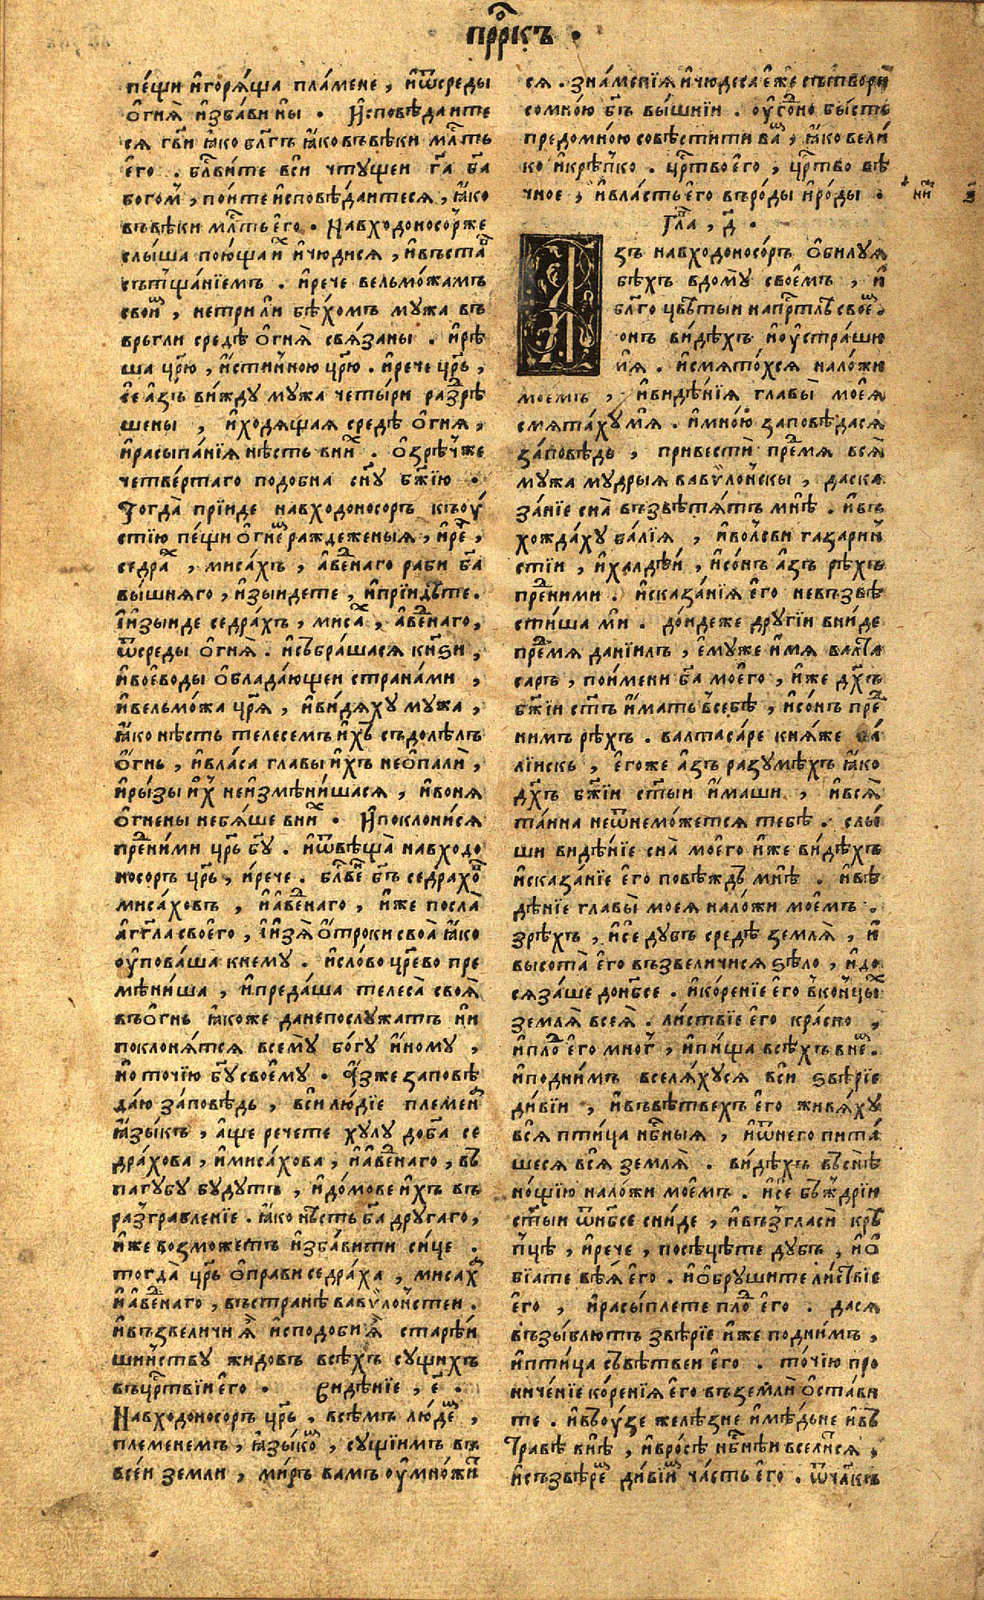 пр҇ркъ .
пе́щи и҆горѧ́ща пла́мене , и҆ѿсреды
о҆гнѧ̀ и҆зба́ви ны . И҆сповѣ́даите
сѧ гв҃и ꙗ҆́ко бл҃гъ ꙗ҆́ковъвѣ́ки мл҇ть
е҆го . бл҃ви́те вси чтꙋщеи га҃ ба҃
богом̾ , по́ите и҆сповѣ́даитесѧ , ꙗ҆́ко
въвѣ́ки мл҇ть е҆го . Навходоносо́рже
слы́ша пою́ща и҆ и҆чюди́сѧ , и҆въста
сътща́нїемъ . и҆рече вельмо́жамъ
свои҆м , не три́ ли бѣ́хомъ мꙋжа въ
връгли средѣ̀ о҆гнѧ̀ свѧ́заны . и҆рѣ
ша цр҃ю , и҆стинною цр҃ю . и҆рече цр҃ь ,
се а҆́зъ ви́ждꙋ мꙋжа четы́ри разрѣ
шены , и҆ходѧ́ща средѣ̀ о҆гнѧ ,
и҆расыпа́нїѧ нѣ́сть вних . о҆зрѣ́ч̾же
четве́ртаго подобна сн҃ꙋ бж҃їю .
Тогда̀ прїи́де навходоносоръ къоу҆́
стїю пе́щи о҆гнеш раждеженыѧ , и҆ре҇ ,
седрах , мисахъ , а҆вде́наго раби ба҃
вышнѧго , и҆зыидете , и҆прїидѣ́те .
И҆и҆зыиде седра́хъ , миса́х , а҆вде́наго ,
ѿсреды о҆гнѧ̀ . и҆събра́шасѧ кнѧ́ѕи ,
и҆вое҆воды о҆блада́ющеи страна́ми ,
и҆вельмо́жа цр҃ѧ , и҆видѧ́хꙋ мꙋжа ,
ꙗ҆́ко нѣ́сть телесемъ и҆́хъ съдолѣ́лъ
о҆гнь , и҆вла́са главы и҆́хъ не о҆пали ,
и҆ры́зы и҆́х неи҆змѣни́шасѧ , и҆вонѧ
о҆гнены небѧ́ше вних . И҆поклони́сѧ
преними цр҃ь бг҃ꙋ . и҆ѿвѣща̀ навходо
носоръ цр҃ь , и҆рече . бл҃ве́н бг҃ъ седрахо҇в
мисаховъ , и҆а҆вде́наго , и҆́же посла̀
а҆гг҃ла своего , и҆и҆зѧ̀ о҆троки своѧ̀ ꙗ҆́ко
оу҆пова́ша кнемꙋ . и҆слово цр҃ево пре
мѣни́ша , и҆преда́ша телеса̀ своѧ̀
въо҆гнь ꙗ҆́коже данепослꙋжатъ ни
поклонѧ́тсѧ всемꙋ бо́гꙋ и҆номꙋ ,
но то́чїю бг҃ꙋ своемꙋ . А҆́зже заповѣ
да́ю за́повѣдь , вси лю́дїе племен
ꙗ҆зы́къ , а҆́ще речете хꙋлꙋ доба҃ се
дра́хова , и҆миса́хова , и҆а҆вде́наго , въ
пагꙋбꙋ бꙋдꙋтъ , и҆до́мове и҆́хъ въ
разграбленїе . ꙗ҆́ко нѣ́сть ба҃ дрꙋгаго ,
и҆́же возможетъ и҆зба́вити сице .
тогда̀ цр҃ь о҆прави седра́ха , миса́х
и҆а҆вде́наго , въстранѣ вавѵло́нстеи .
и҆възвеличи ѧ҆̀ и҆сподоби ѧ҆̀ старѣ́и
шиньствꙋ жидовъ всѣ́хъ сꙋщихъ
въцр҇твїи е҆го . Видѣ́нїе , е҃ .
Навходоносоръ цр҃ь . всѣ́мъ людем ,
племенемъ , ꙗ҆зы́ком , сꙋщимъ въ
всеи земли , миръ вамъ оу҆множи
сѧ . зна́менїѧ и҆чюдеса е҆́же сътвори
сомно́ю бг҃ъ вы́шнїи . оу҆го́дно бы́сть
предомно́ю совѣстити вам , ꙗ҆́ко вели́
ко и҆крѣ́пко . цр҇тво е҆го , цр҇тво вѣ
чное , и҆вла́сть е҆го въро́ды и҆ро́ды .
Гла , д҃ .
Азъ навходоносо́ръ о҆билꙋѧ
бѣ́хъ вдомꙋ своемъ , и҆
бл҃го цвѣтыи напр҇тлѣ свое҆м
сонъ ви́дѣхъ и҆оу҆страши
мѧ . и҆смѧто́хсѧ наложи
моемъ , и҆видѣ́нїѧ главы̀ моеѧ̀
смѧта́хꙋ мѧ . и҆мно́ю заповѣдасѧ
за́повѣдь , привестѝ предмѧ всѧ̀
мꙋжа мꙋдрыѧ вавѵло́нскы , даска
за́нїе сна̀ възвѣстѧ́тъ мнѣ̀ . и҆въ
хожда́хꙋ ба́лїѧ , и҆во́лсви газарин
стїи , и҆халдѣ́и , и҆со́нъ а҆́зъ рѣ́хъ
преними . и҆сказа́нїѧ е҆го невъзвѣ
сти́ша ми . до́ндеже дрꙋгїи вни́де
предмѧ данїилъ , е҆мꙋже и҆́мѧ валта
саръ , поимени ба҃ мое҆го , и҆́же дх҃ъ
бж҃їи ст҃ъ и҆́мать всебѣ̀ , и҆со́нъ пре
нимъ рѣ́хъ . валтаса́ре кнѧ́же ба́
лїискъ , е҆го́же а҆́зъ разꙋмѣ́хъ ꙗ҆́ко
дх҃ъ бж҃їи ст҃ыи и҆́маши , и҆всѧ̀
та́ина неѿнеможетсѧ тебѣ̀ . слы́
ши видѣ́нїе сна̀ мое҆го и҆́же ви́дѣхъ
и҆сказа́нїе е҆го повѣждь мнѣ̀ . и҆вѣ
дѣ́нїе главы̀ моеѧ наложи моемъ .
зрѣ́хъ , и҆се дꙋбъ средѣ̀ землѧ̀ , и҆
высота̀ е҆го възвеличисѧ ѕѣло , и҆до
сѧза́ше донб҃се . и҆ко́ренїе е҆го вконцых
землѧ̀ всеѧ̀ . ли́ствїе е҆го кра́сно ,
и҆пло҇д е҆го мног̾ , и҆пи́ща всѣ́хъ вне҇м .
и҆поднимъ вселѧ́хꙋсѧ вси ѕвѣ́рїе
ди́вїи , и҆въвѣтвехъ е҆го живѧ́хꙋ
всѧ̀ птица нб҇ныѧ , и҆ѿнего пита́
шесѧ всѧ̀ землѧ̀ . ви́дѣхъ въснѣ̀
но́щїю наложи моемъ . и҆се бъ́ждрїи
ст҃ыи ѿнб҃се сни́де , и҆възгласѝ крѣ́
пцѣ , и҆рече , посѣцѣ́те дꙋбъ , и҆о҆
бїа́те вѣ́ѧ е҆го . и҆о҆брꙋшите ли́ствїе
е҆го , и҆расы́плете пло҇д е҆го . дасѧ
възы́блютъ звѣ́рїе и҆́же поднимъ ,
и҆птица съвѣ́твеи е҆го . то́чїю про
ничѐнїе ко́ренїѧ е҆го въземлѝ о҆ста́ви
те . и҆въоу҆зе желѣ́зне и҆мѣ́дьне и҆въ
Травѣ̀ внѣ̀ , и҆вро́сѣ нб҇нѣи вселисѧ ,
и҆съзвѣ́ре҇м ди́вїим ча́сть е҆го . ѿчл҃къ